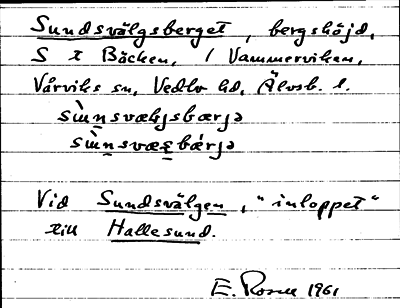 Sundsvälgsberget, bergshöjd,
S t Bäcken, / Vammerviken,
Vårviks sn, Vedbo hd, Älvsb. l.
Vid Sundsvälgen, "inloppet"
till Hallesund.
E. Rosell 1961